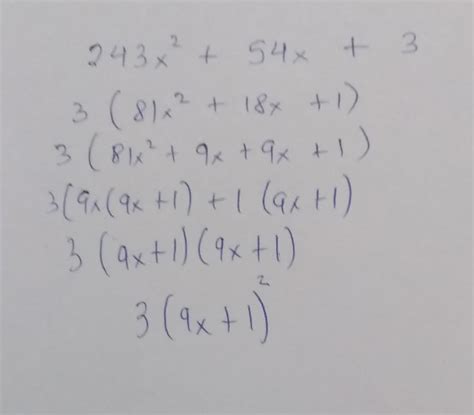 243x² + 54x + 3
3 (81x² + 18x + 1)
3 (81x² + 9x + 9x + 1)
3(9x(9x+1) + 1 (9x+1)
3 (9x+1)(9x+1)
3(9x+1)²